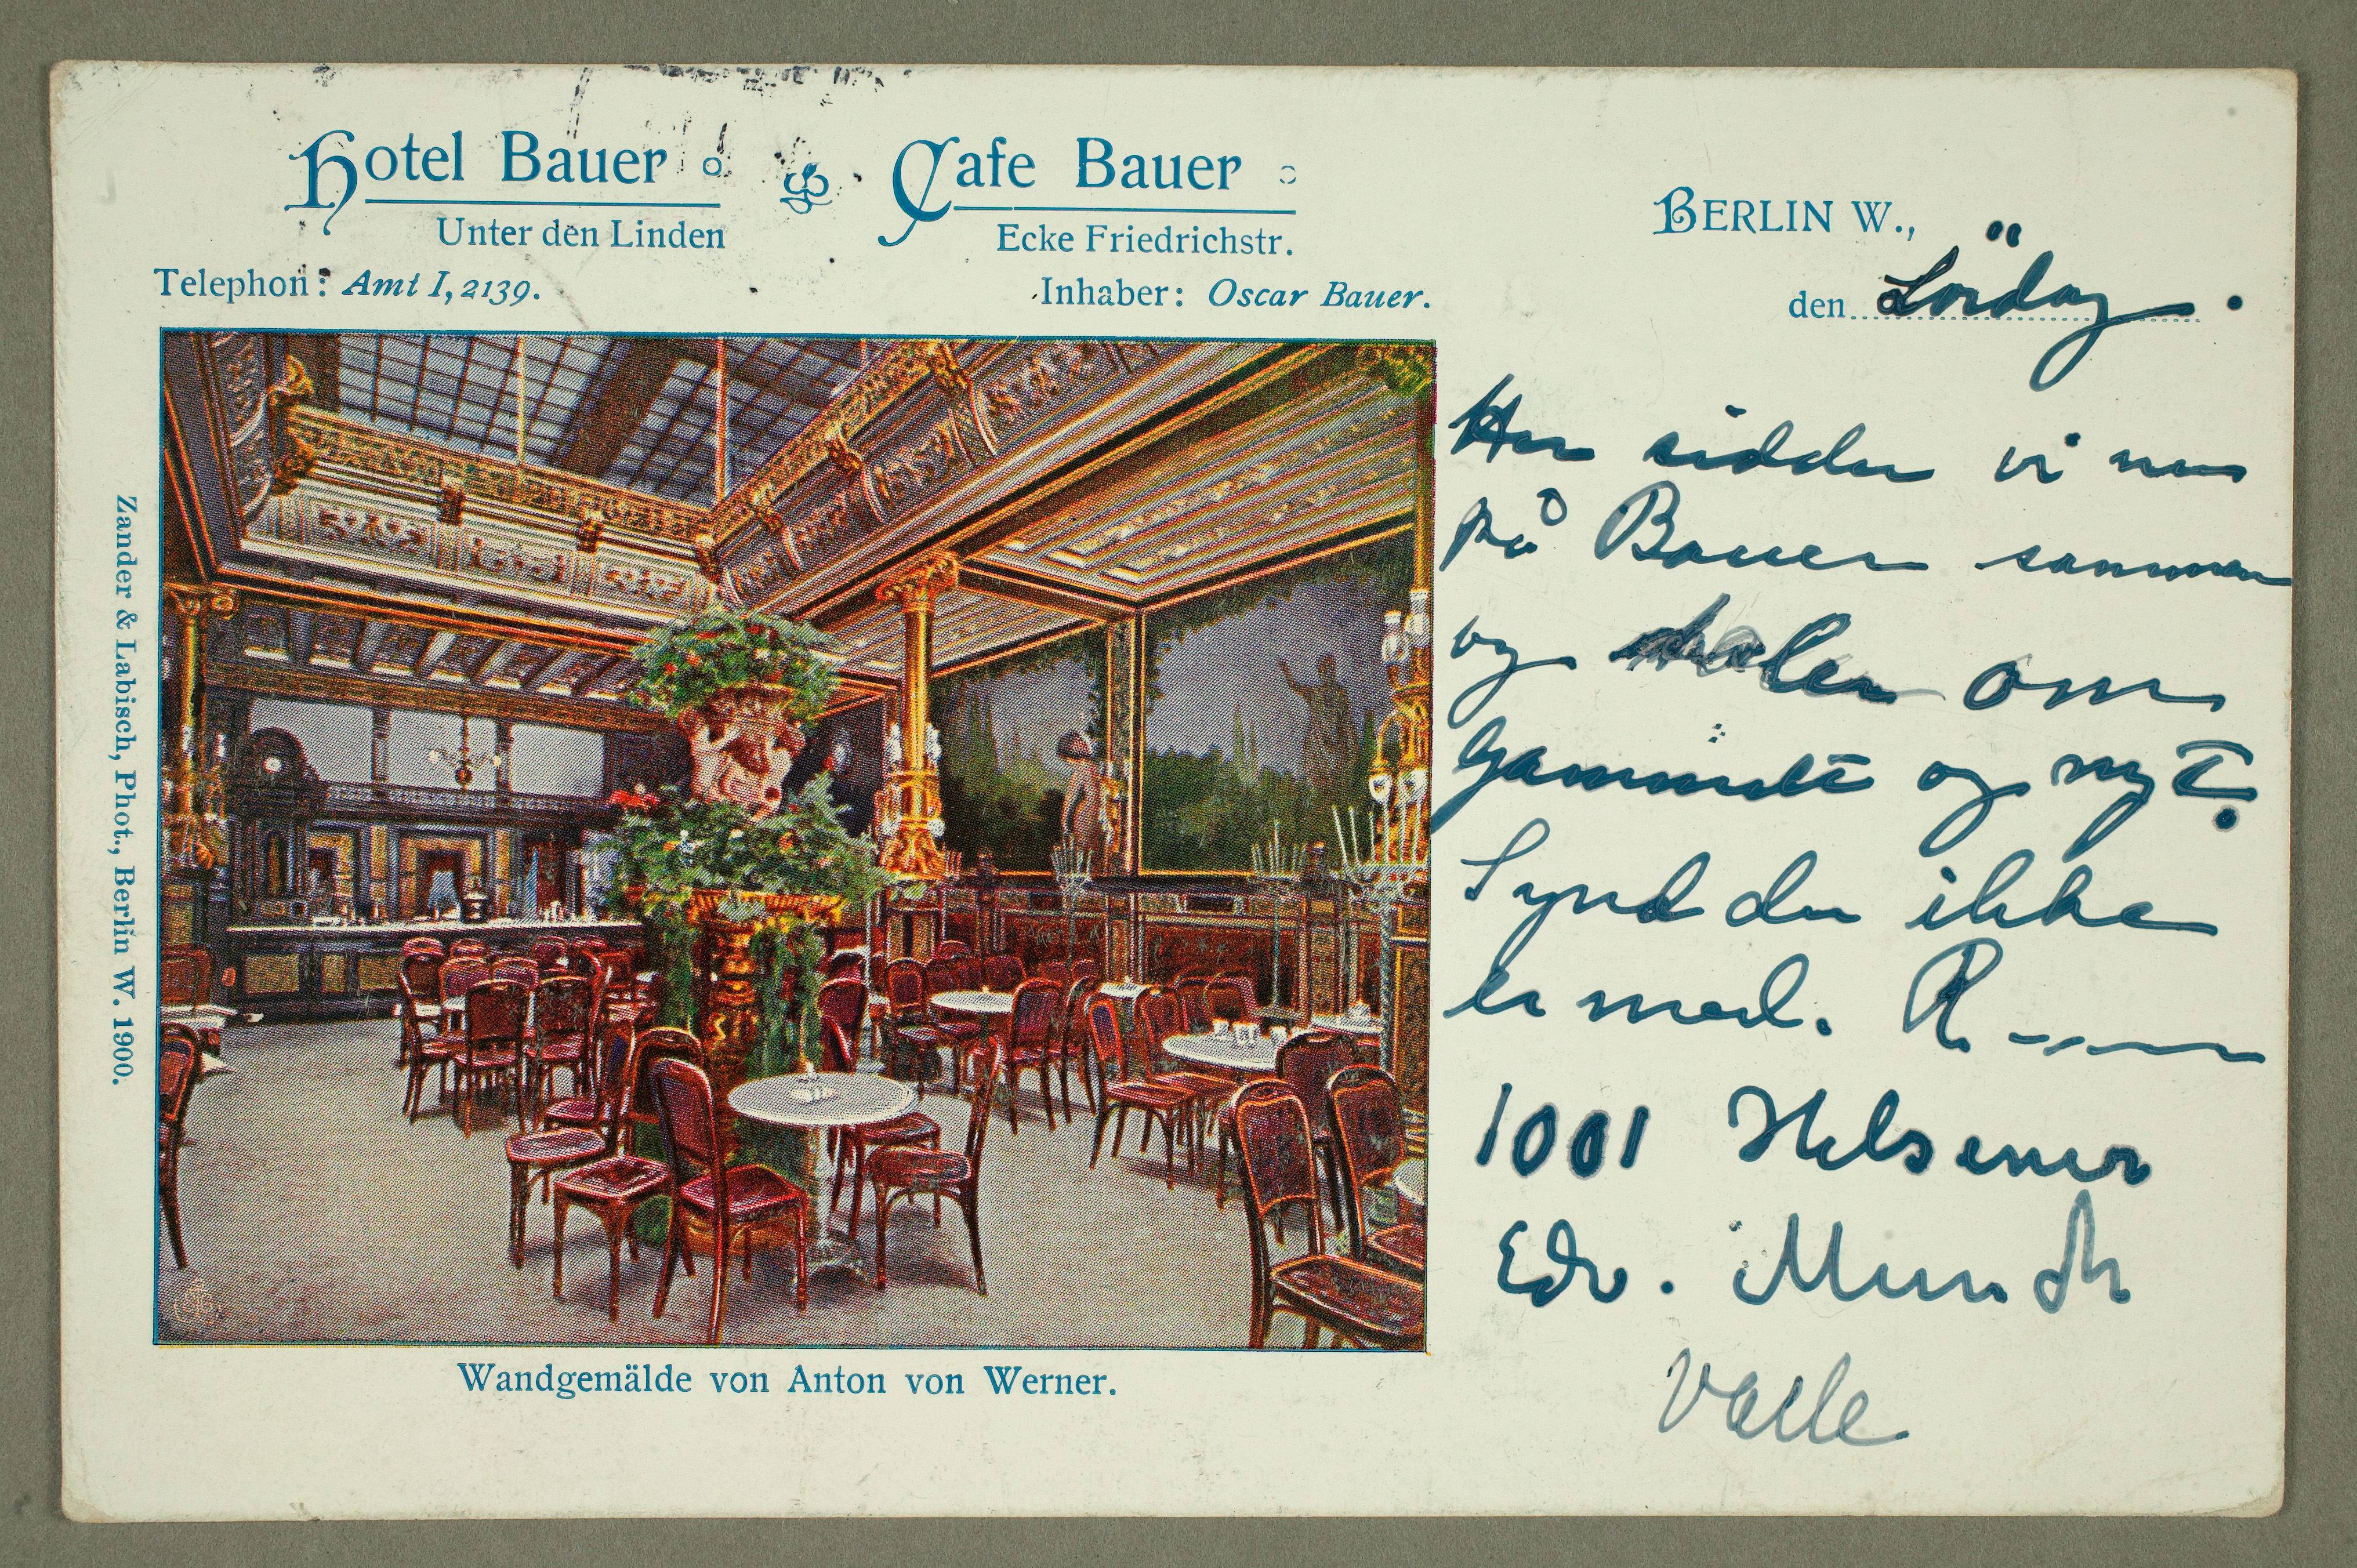 Hotel Bauer
Unter den Linden
Cafe Bauer
Ecke Friedrichstr.
Telephon: Amt I, 2139.
Inhaber: Oscar Bauer.
BERLIN W.,
den Lördag.
Her sidder vi nu
på Bauer sammen
og taler om
Gammelt og nyt.
Synd du ikke
er med. R
1001 Hilsener
Edv. Munch
Zander & Labisch, Phot., Berlin W. 1900.
Wandgemälde von Anton von Werner.